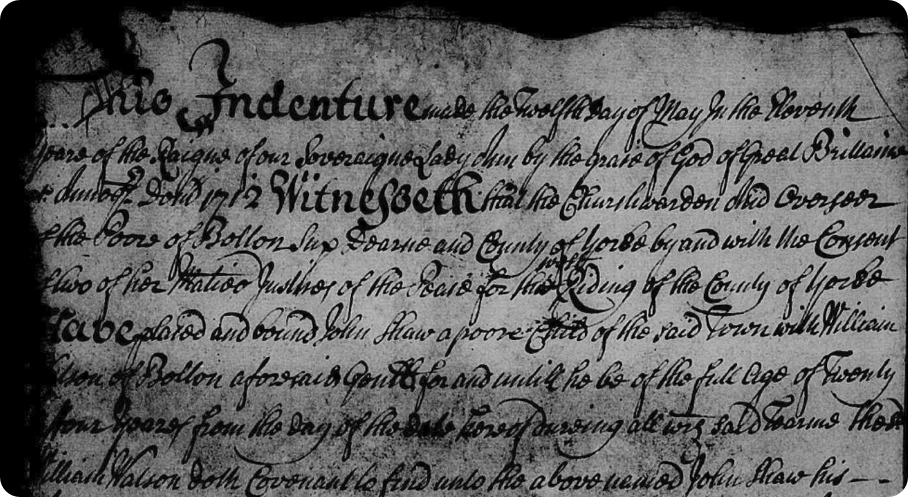 This Indenture made the Twelfth day of May In the Eleventh
yeare of the Raigne of our Soveraigne Lady Ann by the grace of God of Great Brittaine
Annoq Dom 1712 Witnesseth that the Churchwarden And Overseer
of the Poore of Bolton Sup Dearne and County of Yorke by and with the Consent
of two of her Maties Justices of the Peace for the west Riding of the County of Yorke
Have placed and bound John Shaw a poore Child of the said Town with William
Watson of Bolton aforesaid Gentl for and untill he be of the full Age of Twenty
four yeares from the day of the date hereof dureing all wch said Tearme the
William Watson doth Covenant to find unto the above named John Shaw his